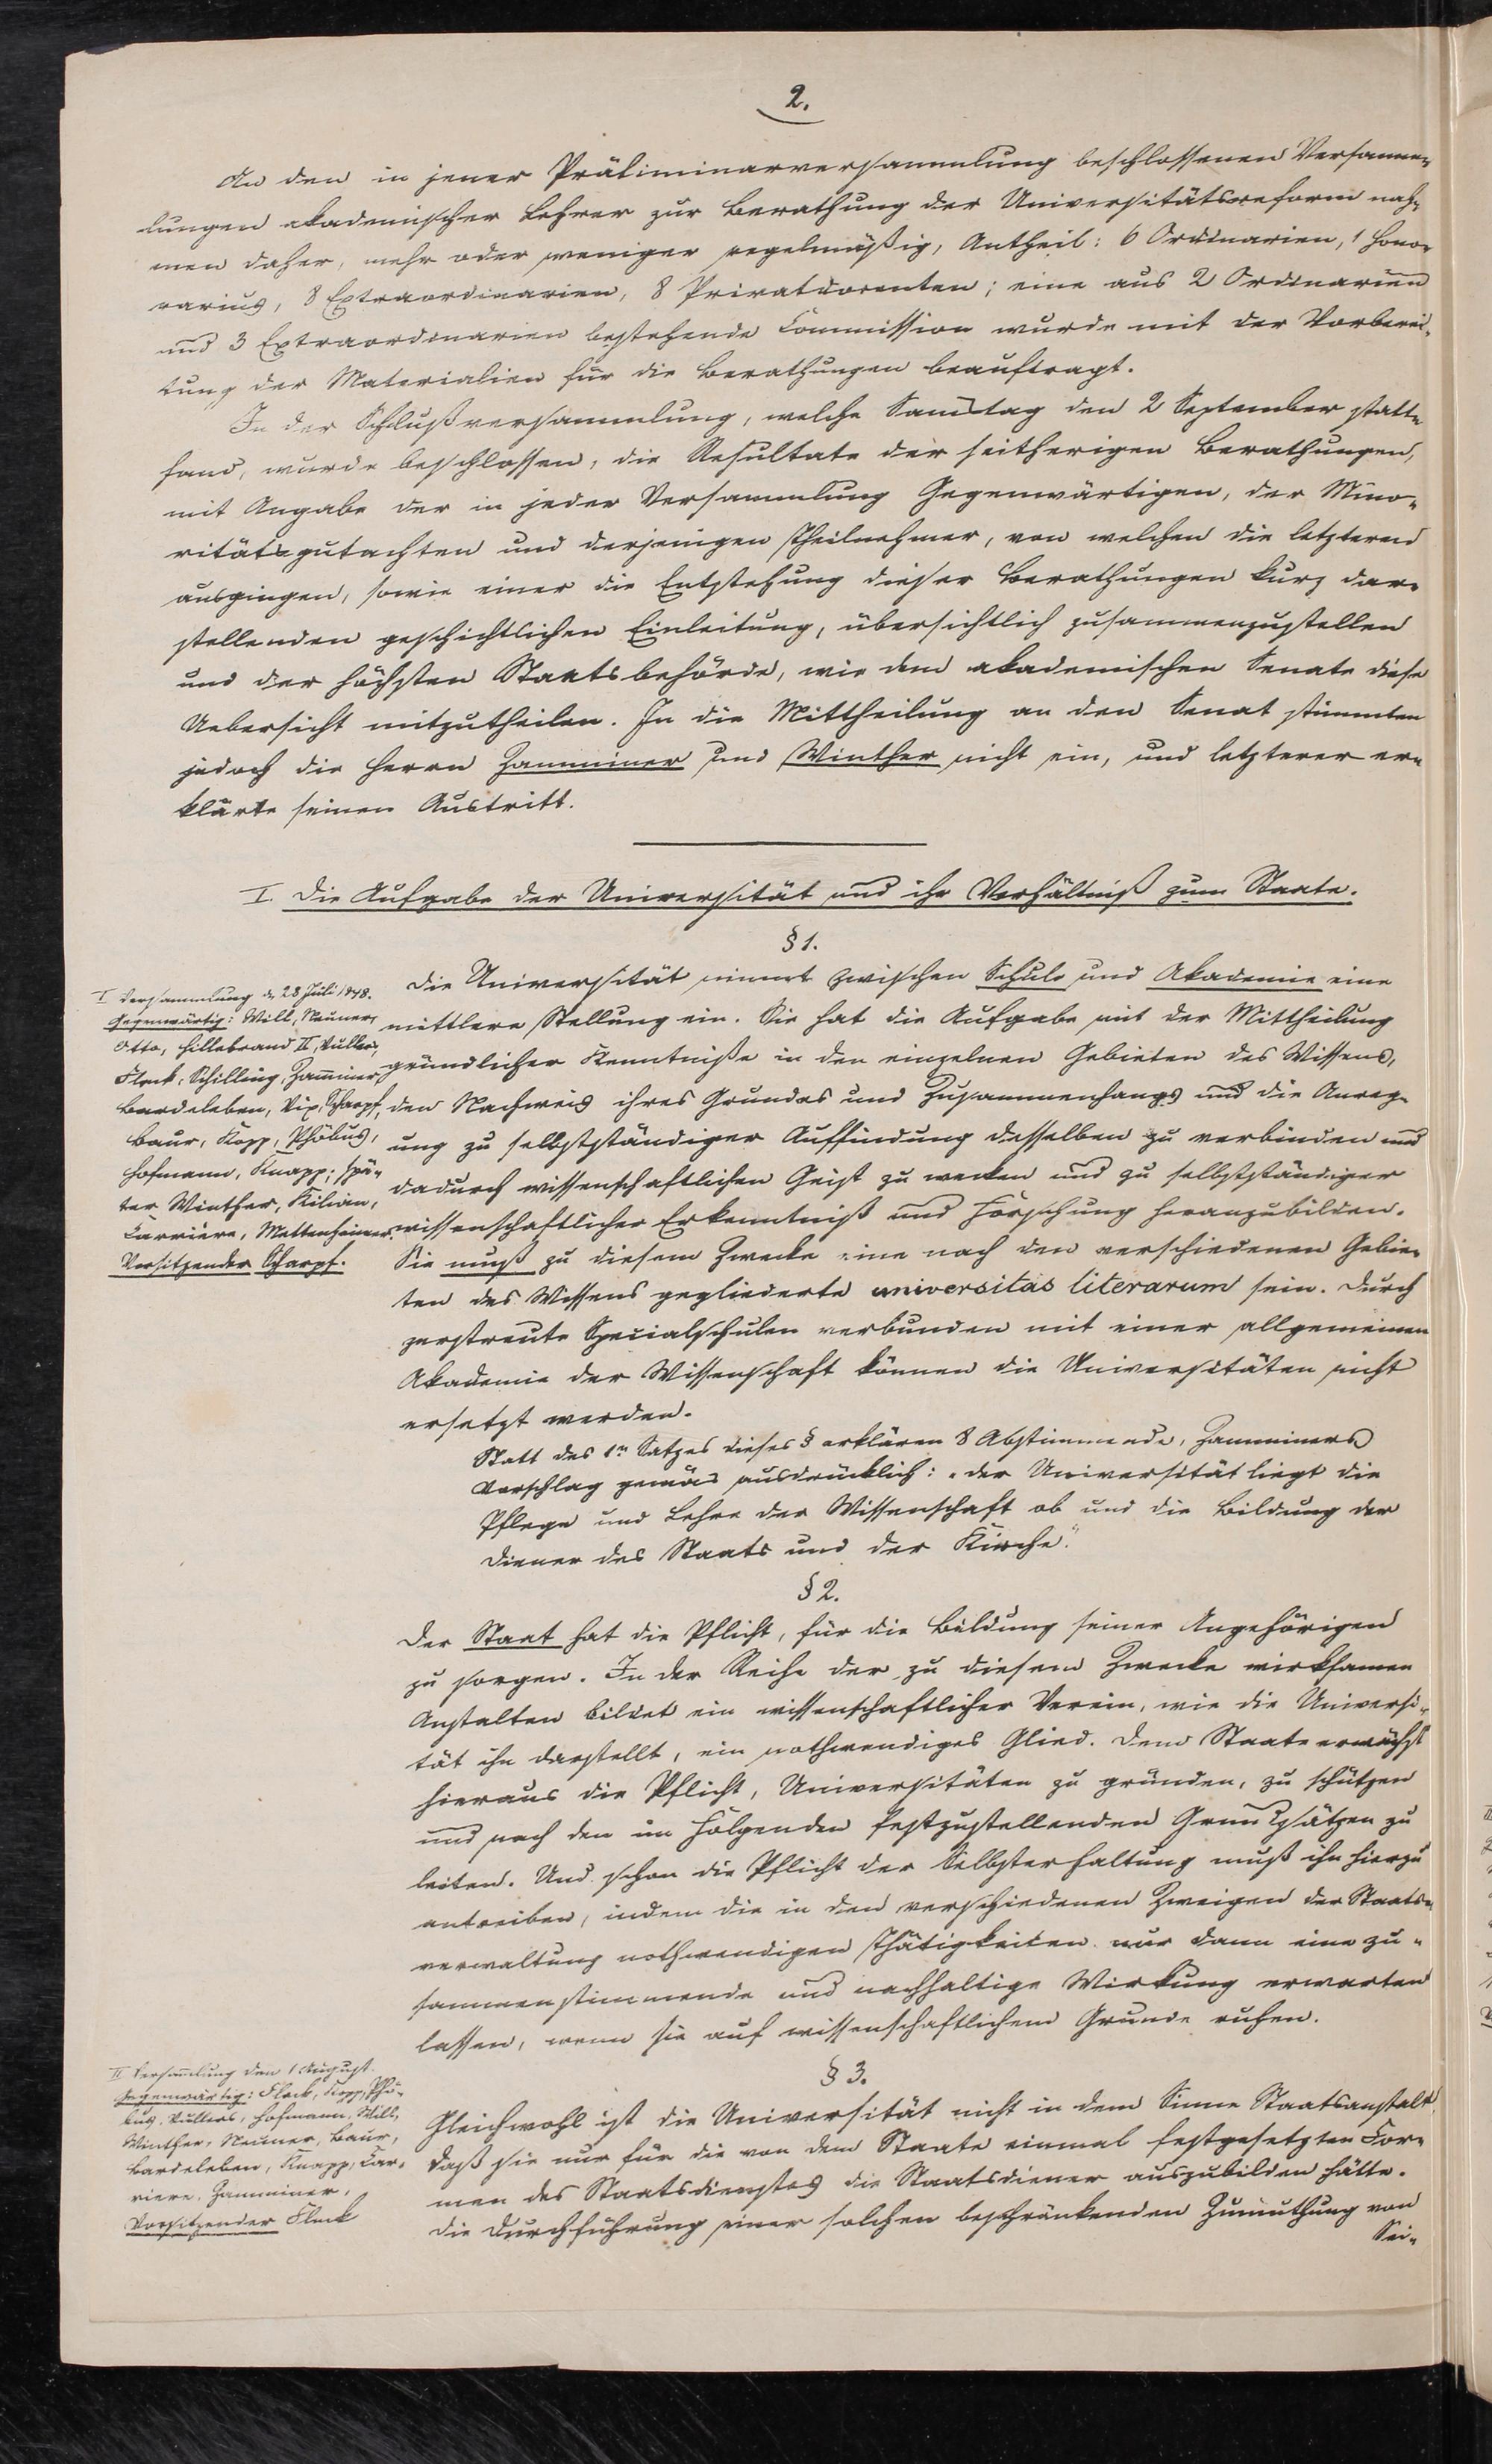 2.
An den in jener Präliminarversammlung beschlossenen Versamm-
lungen akademischer Lehrer zur Berathung der Universitätsreform nah-
men daher, mehr oder weniger regelmäßig, Antheil: 6 Ordinarien, 1 Hono-
rarius, 8 Extraordinarien, 8 Privatdocenten; eine aus 2 Ordinarien
und 3 Extraordinarien bestehende Commission wurde mit der Vorberei-
tung der Materialien für die Berathungen beauftragt.
In der Schlußversammlung, welche Samstag den 2 September statt-
fand, wurde beschlossen, die Resultate der seitherigen Berathungen,
mit Angabe der in jeder Versammlung Gegenwärtigen, der Mino-
ritätsgutachten und derjenigen Theilnehmer, von welchen die letzteren
ausgingen, sowie einer die Entstehung dieser Berathungen kurz dar-
stellenden geschichtlichen Einleitung, übersichtlich zusammenzustellen
und der höchsten Staatsbehörde, wie dem akademischen Senate diese
Uebersicht mitzutheilen. In die Mittheilung an den Senat stimmten
jedoch die Herrn Zamminer und Winther nicht ein, und letzterer er-
klärte seinen Austritt.
I. Die Aufgabe der Universität und ihr Verhältniß zum Staate.
§ 1.
I Versammlung d. 28 Juli 1848.
Gegenwärtig: Will, Neuner,
Otto, Hillebrand II, Vullers,
Fleck, Schilling, Zamminer,
Bardeleben, Vix, Scharpf,
Baur, Kopp, Phöbus,
Hofmann, Knapp; spä-
ter Winther, Kilian,
Carriere, Mettenheimer.
Vorsitzender Scharpf.
Die Universität nimmt zwischen Schule und Akademie eine
mittlere Stellung ein. Sie hat die Aufgabe mit der Mittheilung
gründlicher Kenntniße in den einzelnen Gebieten des Wissens,
den Nachweis ihres Grundes und Zusammenhangs und die Anreg-
ung zu selbstständiger Auffindung desselben zu verbinden und
dadurch wissenschaftlichen Geist zu wecken und zu selbstständiger
wissenschaftlicher Erkenntniß und Forschung heranzubilden.
Sie muß zu diesem Zwecke eine nach den verschiedenen Gebie-
ten des Wissens gegliederte universitas literarum sein. Durch
zerstreute Specialschulen verbunden mit einer allgemeinen
Akademie der Wissenschaft können die Universitäten nicht
ersetzt werden.
Statt des 1n Satzes dieses § erklären 8 Abstimmende, Zamminers
Vorschlag gemäs ausdrücklich: „der Universität liegt die
Pflege und Lehre der Wissenschaft ob und die Bildung der
Diener des Staats und der Kirche."
§ 2.
Der Staat hat die Pflicht, für die Bildung seiner Angehörigen
zu sorgen. In der Reihe der zu diesem Zwecke wirksamen
Anstalten bildet ein wissenschaftlicher Verein, wie die Universi-
tät ihn darstellt, ein nothwendiges Glied. Dem Staate erwächst
hieraus die Pflicht, Universitäten zu gründen, zu schützen
und nach den im Folgenden festzustellenden Grundsätzen zu
leiten. Und schon die Pflicht der Selbsterhaltung muß ihn hierzu
antreiben, indem die in den verschiedenen Zweigen der Staats-
verwaltung nothwendigen Thätigkeiten nur dann eine zu-
sammenstimmende und nachhaltige Wirkung erwarten
lassen, wenn sie auf wissenschaftlichem Grunde ruhen.
§ 3.
II Versammlung den 1 August.
Gegenwärtig: Fleck, Kopp, Phö-
bus, Vullers, Hofmann, Will,
Winther, Neuner, Baur,
Bardeleben, Knapp, Car-
riere, Zamminer.
Vorsitzender Fleck
Gleichwohl ist die Universität nicht in dem Sinne Staatsanstalt,
daß sie nur für die von dem Staate einmal festgesetzten For-
men des Staatsdienstes die Staatsdiener auszubilden hätte.
Die Durchführung einer solchen beschränkenden Zumuthung von
Sei-